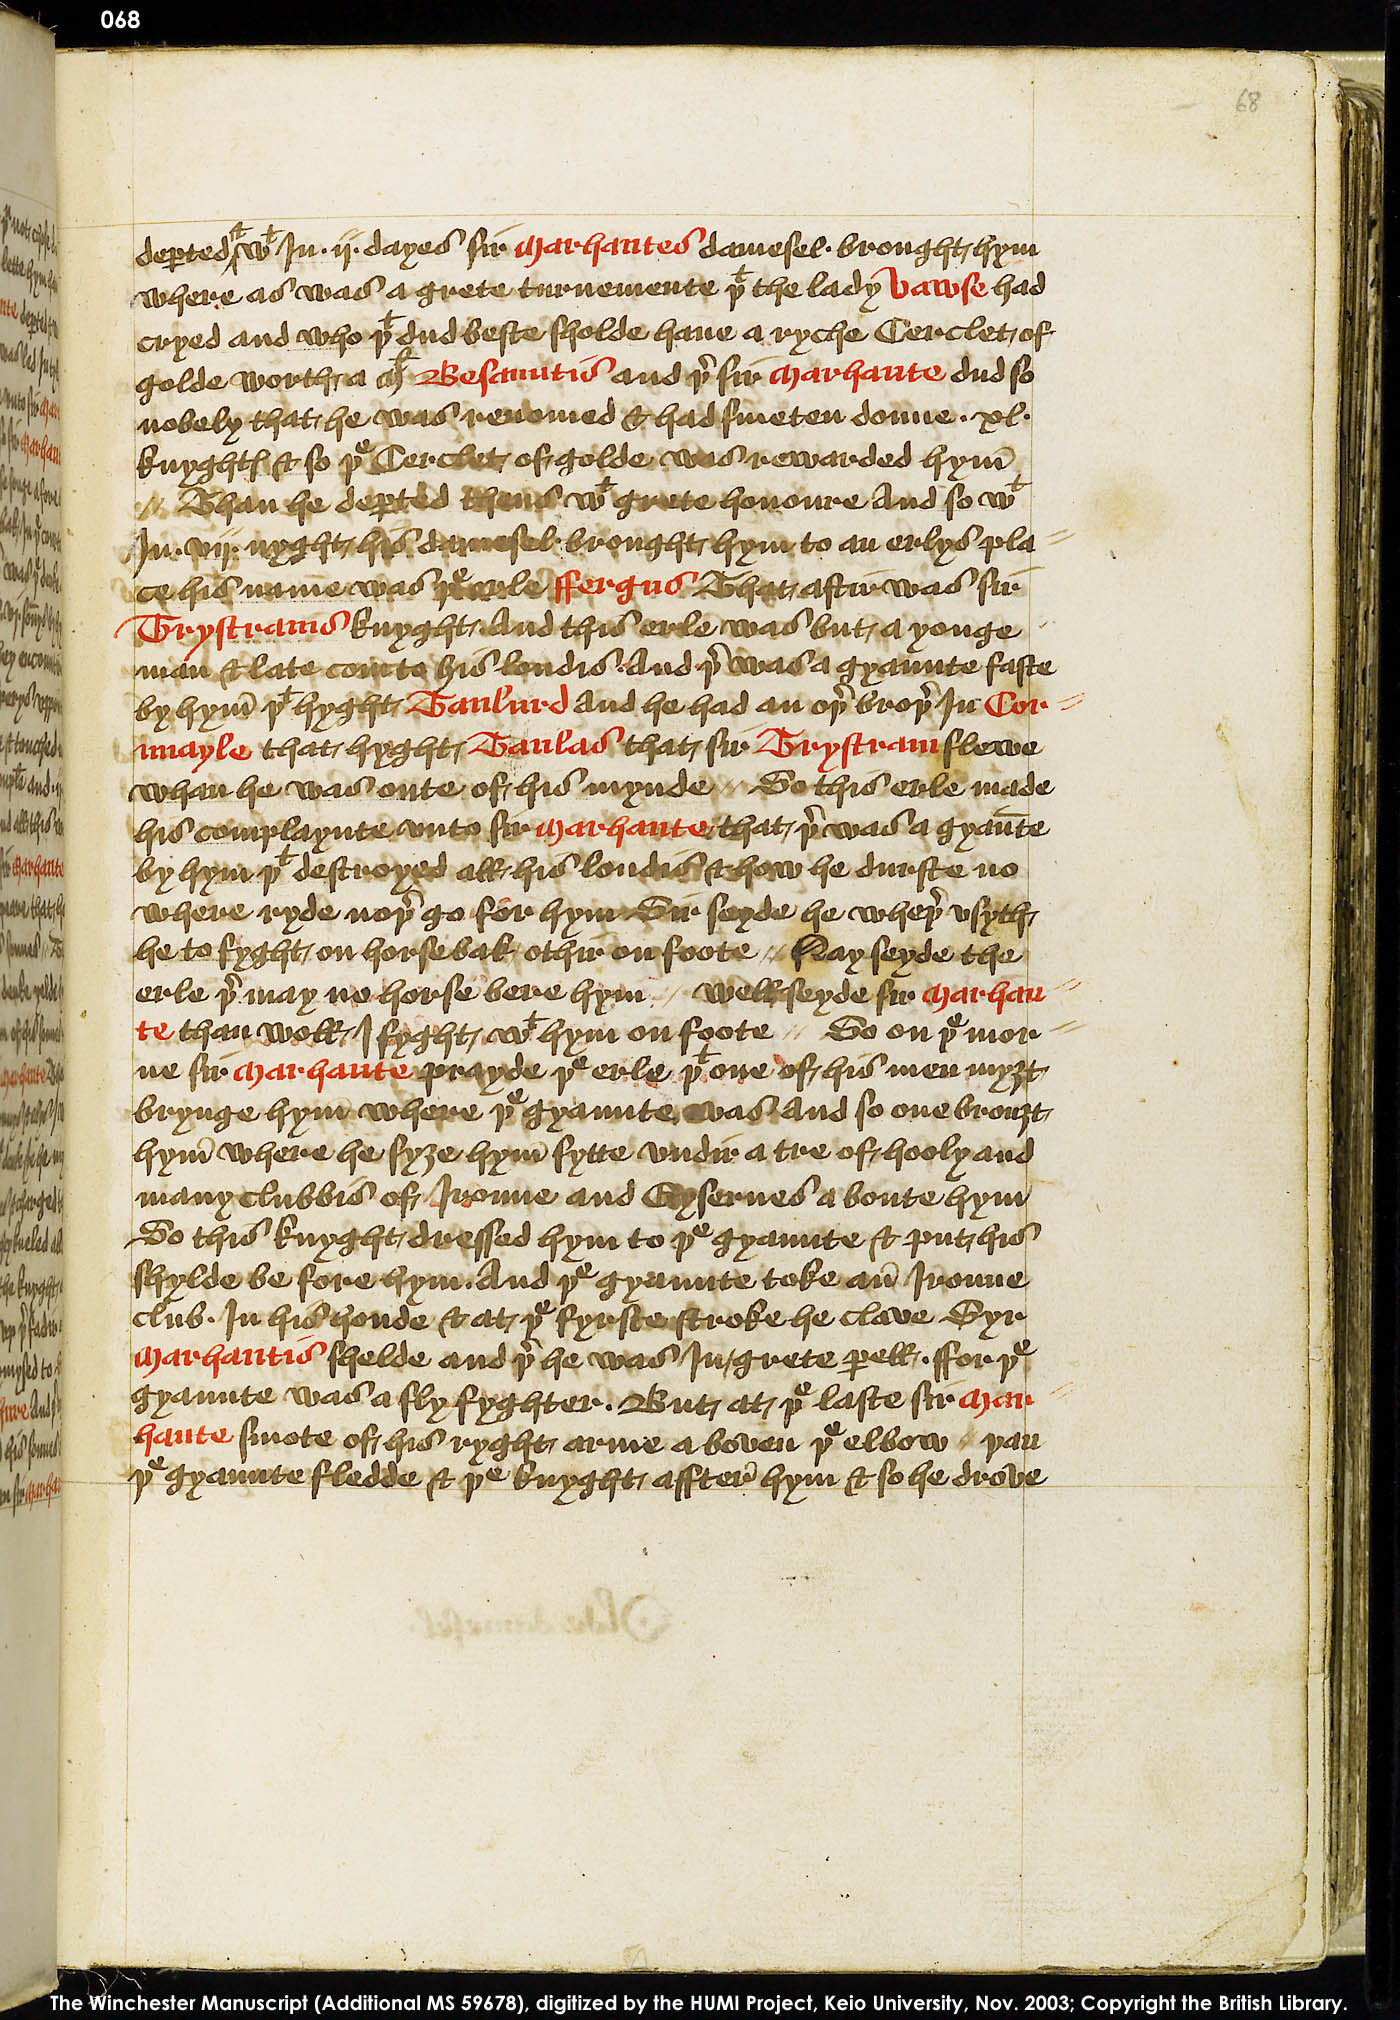 068
68
deꝑted ⁊ wᵗ Jn · ij · dayes sir Marhautes damesel · brought hym
where as was a grete turnemente þᵗ the lady Vawse had
cryed and who þᵗ dud beste sholde haue a ryche Cerclet of
golde worth a Mˡ Besauntis and þʳ sir Marhaute dud so
nobely that he was renomed & had smeten doune · xl ·
knyghtꝭ & so þᵉ Cerclet of golde was rewarded hym̄
// Than he deꝑted thens wᵗ grete honoure And so wᵗ
Jn · vij · nyght his damesel brought hym to an erlys pla=
ce his name was þᵉ erle ffergus That aftir was sir
Trystrams knyght · And this erle was but a yonge
man & late com to his londis · And þʳ was a gyaunte faste
by hym̄ þᵗ hyght Taulurd And he had an oþʳ broþʳ Jn Cor=
nuayle that hyght Taulas that sir Trystram slewe
whan he was oute of his mynde // So this erle made
his complaynte vnto sir Marhaute that þʳ was a gyaūte
by hym þᵗ destroyed all his londis & how he durste no
where ryde noþʳ go for hym Sir seyde he wheþʳ vsyth
he to fyght on horsebak othir on foote // Nay seyde the
erle þʳ may no horse bere hym // well seyde sir Marhau=
te than woll J fyght wᵗ hym on foote // So on þᵉ mor=
ne sir Marhaute prayde þᵉ erle þᵗ one of his men myȝt
brynge hym̄ where þᵉ gyaunte was And so one brouȝt
hym̄ where he syȝe hym̄ sytte vndir a tre of hooly and
many clubbis of Jronne and Gysernes a boute hym
So this knyght dressed hym to þᵉ gyaunte & put his
shylde be fore hym · And þᵉ gyaunte toke an̄ Jronne
club · Jn his honde & at þᵉ fyrste stroke he clave Syr
Marhautis shelde and þʳ he was Jn grete ꝑell · ffor þᵉ
gyaunte was a sly fyghter · But at þᵉ laste sir Mar=
haute smote of his ryght arme a boven þᵉ elbow // þan
þᵉ gyaunte fledde & þᵉ knyght affter̄ hym & so he drove
The Winchester Manuscript (Additional MS 59678), digitized by the HUMI Project, Keio University, Nov. 2003; Copyright the British Library.